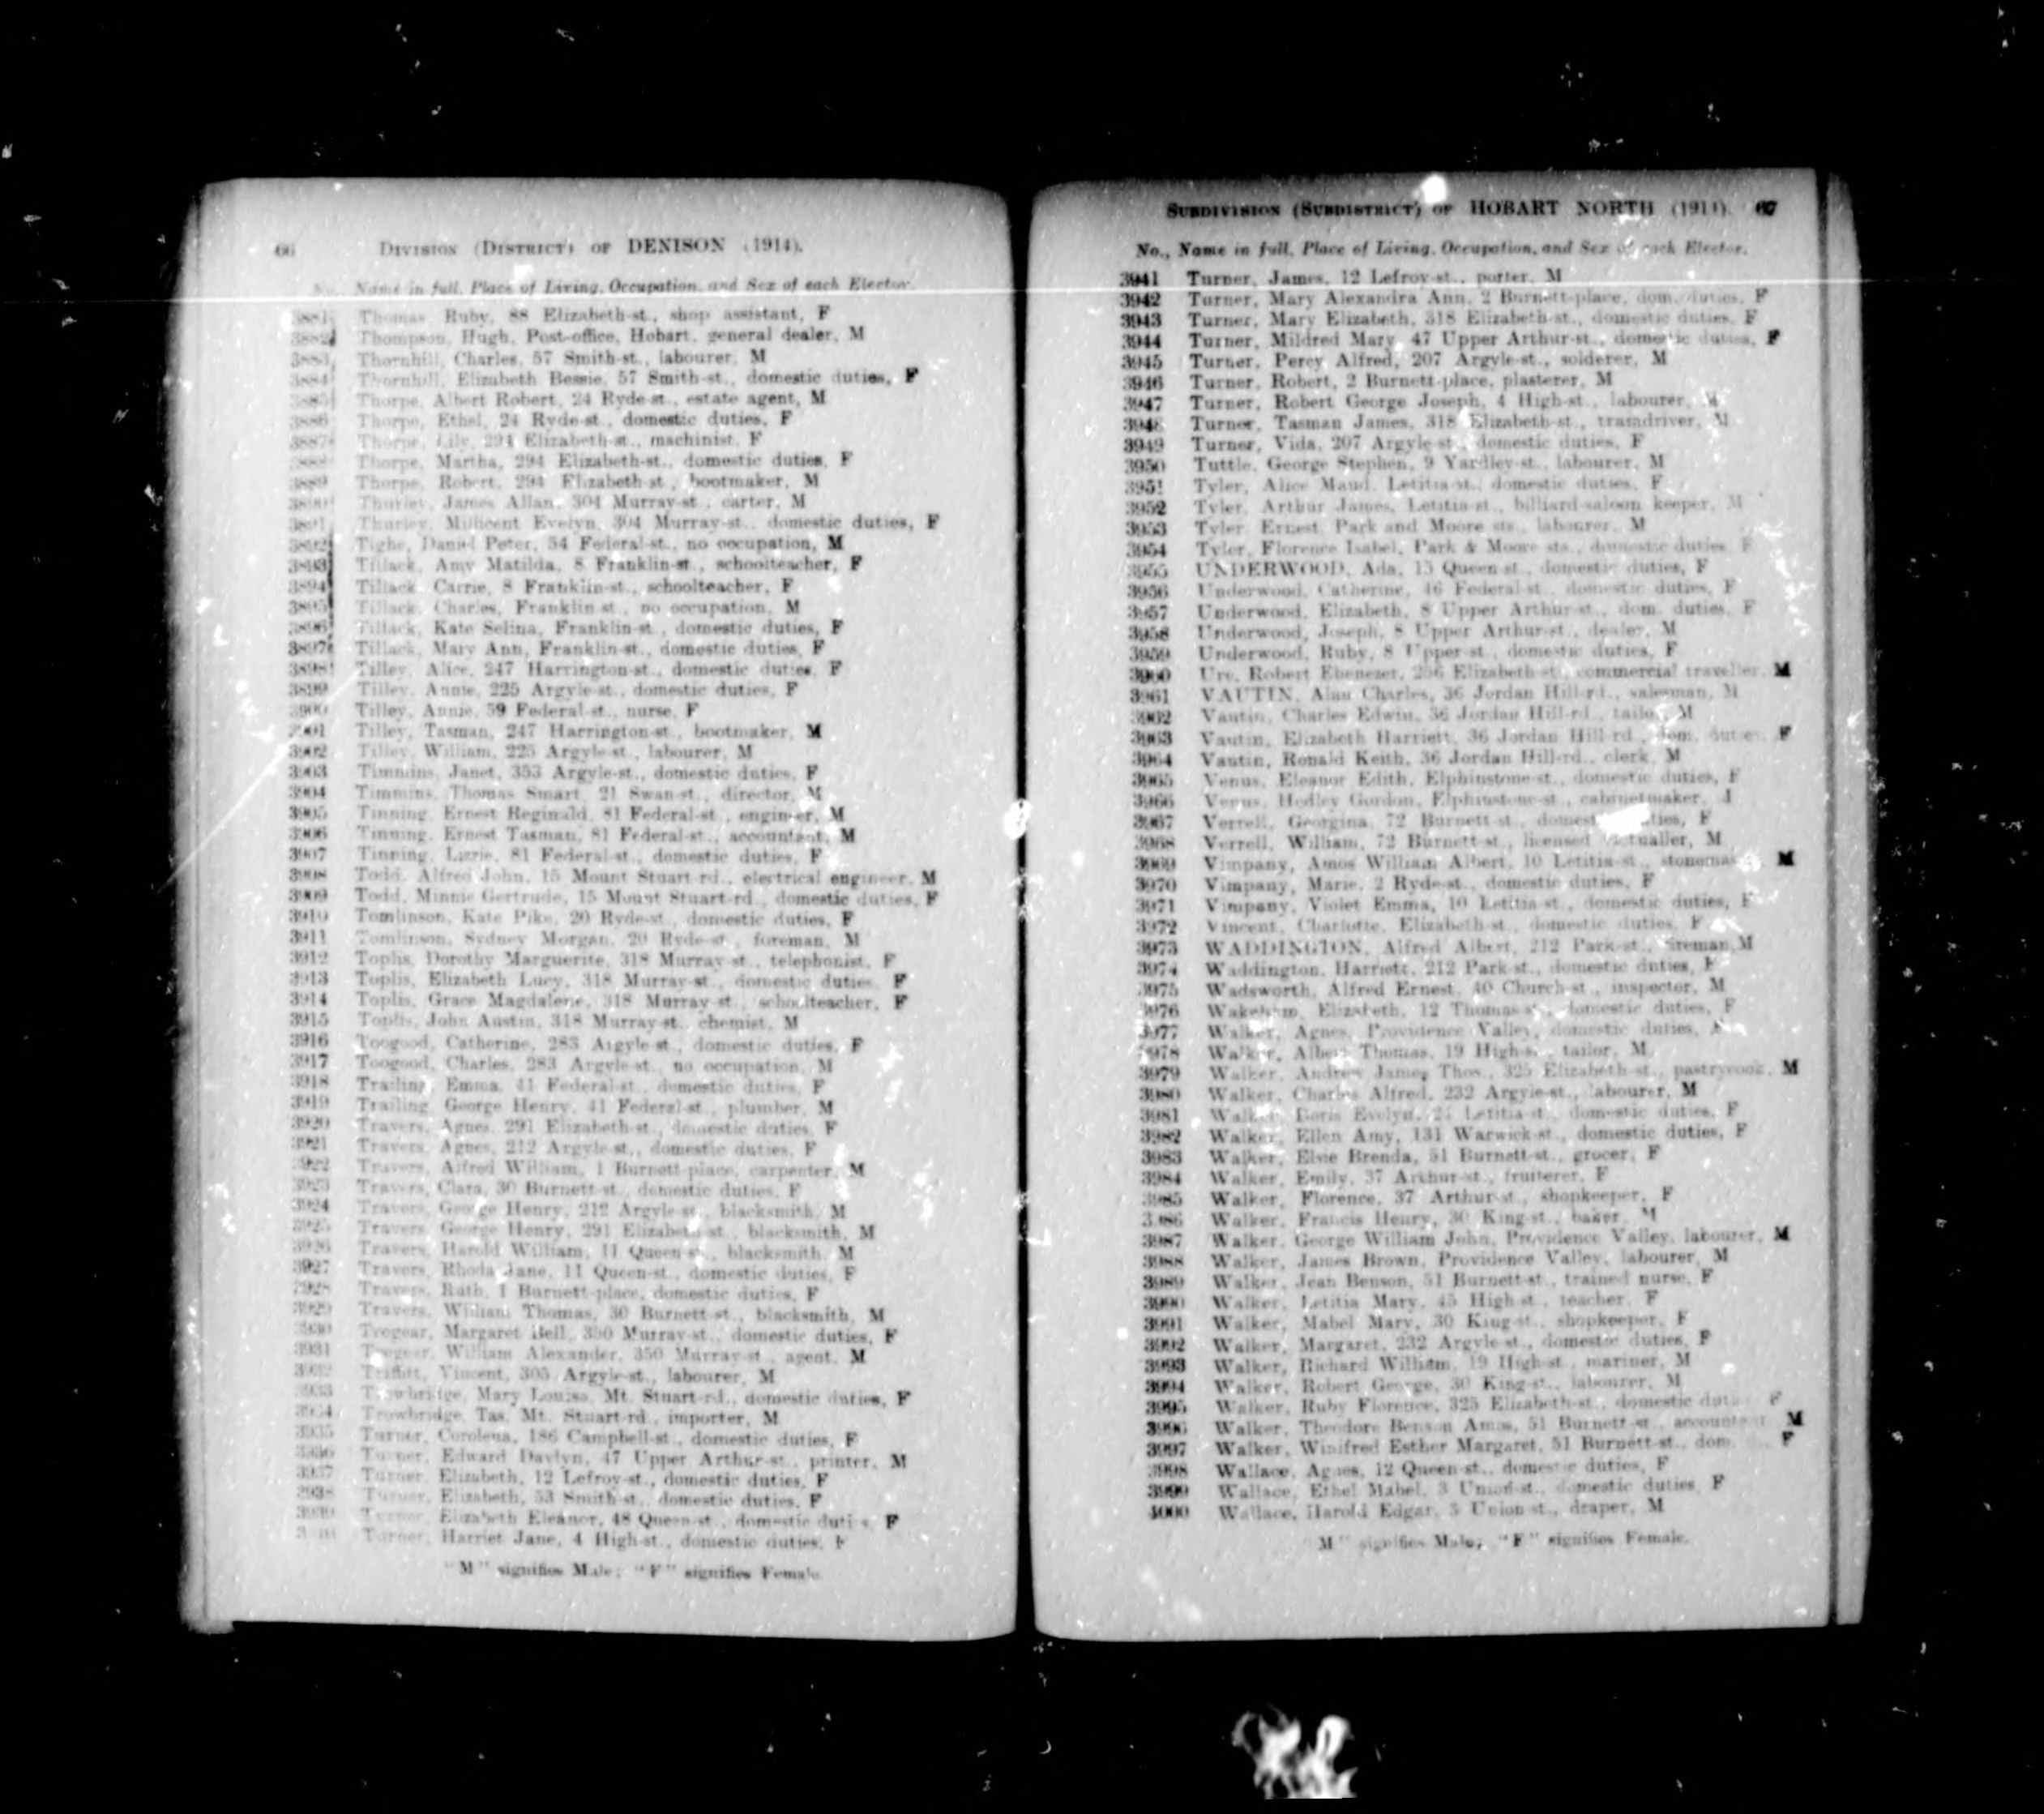 66 DIVISION (DISTRICT) OF DENISON (1914).
No., Name in full, Place of Living, Occupation, and Sex of each Elector.
3881 Thomas Ruby, 88 Elizabeth-st., shop assistant, F
3882 Thompson, Hugh, Post-office, Hobart, general dealer, M
3883 Thornhill, Charles, 57 Smith-st., labourer, M
3884 Thornhill, Elizabeth Bessie, 57 Smith-st., domestic duties, F
3885 Thorpe, Albert Robert, 24 Ryde-st., estate agent, M
3886 Thorpe, Ethel, 24 Ryde-st., domestic duties, F
3887 Thorpe, Lily, 294 Elizabeth-st., machinist, F
3888 Thorpe, Martha, 294 Elizabeth-st., domestic duties, F
3889 Thorpe, Robert, 294 Elizabeth-st., bootmaker, M
3890 Thurley, James Allan, 304 Murray-st., carter, M
3891 Thurley, Milicent Evelyn, 304 Murray-st., domestic duties, F
3892 Tighe, Daniel Peter, 54 Federal-st., no occupation, M
3893 Tillack, Amy Matilda, 8 Franklin-st., schoolteacher, F
3894 Tillack, Carrie, 8 Franklin-st., schoolteacher, F
3895 Tillack, Charles, Franklin-st., no occupation, M
3896 Tillack, Kate Selina, Franklin-st., domestic duties, F
3897 Tillack, Mary Ann, Franklin-st., domestic duties, F
3898 Tilley, Alice, 247 Harrington-st., domestic duties, F
3899 Tilley, Annie, 225 Argyle-st., domestic duties, F
3900 Tilley, Annie, 59 Federal-st., nurse, F
3901 Tilley, Tasman, 247 Harrington-st., bootmaker, M
3902 Tilley, William, 225 Argyle-st., labourer, M
3903 Timmins, Janet, 353 Argyle-st., domestic duties, F
3904 Timmins, Thomas Smart, 21 Swan-st., director, M
3905 Tinning, Ernest Reginald, 81 Federal-st., engineer, M
3906 Tinning, Ernest Tasman, 81 Federal-st., accountant, M
3907 Tinning, Lizzie, 81 Federal-st., domestic duties, F
3908 Todd, Alfred John, 15 Mount Stuart-rd., electrical engineer, M
3909 Todd, Minnie Gertrude, 15 Mount Stuart-rd., domestic duties, F
3910 Tomlinson, Kate Pike, 20 Ryde-st., domestic duties, F
3911 Tomlinson, Sydney Morgan, 20 Ryde-st., foreman, M
3912 Toplis, Dorothy Marguerite, 318 Murray-st., telephonist, F
3913 Toplis, Elizabeth Lucy, 318 Murray-st., domestic duties, F
3914 Toplis, Grace Magdalene, 318 Murray-st., schoolteacher, F
3915 Toplis, John Austin, 318 Murray-st., chemist, M
3916 Toogood, Catherine, 283 Argyle-st., domestic duties, F
3917 Toogood, Charles, 283 Argyle-st., no occupation, M
3918 Trailing, Emma, 41 Federal-st., domestic duties, F
3919 Trailing, George Henry, 41 Federal-st., plumber, M
3920 Travers, Agnes, 291 Elizabeth-st., domestic duties, F
3921 Travers, Agnes, 212 Argyle-st., domestic duties, F
3922 Travers, Alfred William, 1 Burnett-place, carpenter, M
3923 Travers, Clara, 30 Burnett-st., domestic duties, F
3924 Travers, George Henry, 212 Argyle-st., blacksmith, M
3925 Travers, George Henry, 291 Elizabeth-st., blacksmith, M
3926 Travers, Harold William, 11 Queen-st., blacksmith, M
3927 Travers, Rhoda Jane, 11 Queen-st., domestic duties, F
3928 Travers, Ruth, 1 Burnett-place, domestic duties, F
3929 Travers, William Thomas, 30 Burnett-st., blacksmith, M
3930 Tregear, Margaret Bell, 350 Murray-st., domestic duties, F
3931 Tregear, William Alexander, 350 Murray-st., agent, M
3932 Triffitt, Vincent, 305 Argyle-st., labourer, M
3933 Trowbridge, Mary Louisa, Mt. Stuart-rd., domestic duties, F
3934 Trowbridge, Tas, Mt. Stuart-rd., importer, M
3935 Turner, Corolena, 186 Campbell-st., domestic duties, F
3936 Turner, Edward Davlyn, 47 Upper Arthur-st., printer, M
3937 Turner, Elizabeth, 12 Lefroy-st., domestic duties, F
3938 Turner, Elizabeth, 53 Smith-st., domestic duties, F
3939 Turner, Elizabeth Eleanor, 48 Queen-st., domestic duties, F
3940 Turner, Harriet Jane, 4 High-st., domestic duties, F
"M" signifies Male; "F" signifies Female.
SUBDIVISION (SUBDISTRICT) OF HOBART NORTH (1914). 67
No., Name in full, Place of Living, Occupation, and Sex of each Elector.
3941 Turner, James, 12 Lefroy-st., porter, M
3942 Turner, Mary Alexandra Ann, 2 Burnett-place, dom. duties, F
3943 Turner, Mary Elizabeth, 318 Elizabeth-st., domestic duties, F
3944 Turner, Mildred Mary, 47 Upper Arthur-st., domestic duties, F
3945 Turner, Percy Alfred, 207 Argyle-st., solderer, M
3946 Turner, Robert, 2 Burnett-place, plasterer, M
3947 Turner, Robert George Joseph, 4 High-st., labourer, M
3948 Turner, Tasman James, 318 Elizabeth-st., tramdriver, M
3949 Turner, Vida, 207 Argyle-st., domestic duties, F
3950 Tuttle, George Stephen, 9 Yardley-st., labourer, M
3951 Tyler, Alice Maud, Letitia-st., domestic duties, F
3952 Tyler, Arthur James, Letitia-st., billiard-saloon keeper, M
3953 Tyler, Ernest, Park and Moore sts., labourer, M
3954 Tyler, Florence Isabel, Park & Moore sts., domestic duties, F
3955 UNDERWOOD, Ada, 15 Queen-st., domestic duties, F
3956 Underwood, Catherine, 46 Federal-st., domestic duties, F
3957 Underwood, Elizabeth, 8 Upper Arthur-st., dom. duties, F
3958 Underwood, Joseph, 8 Upper Arthur-st., dealer, M
3959 Underwood, Ruby, 8 Upper-st., domestic duties, F
3960 Ure, Robert Ebenezer, 256 Elizabeth-st., commercial traveller, M
3961 VAUTIN, Alan Charles, 36 Jordan Hill-rd., salesman, M
3962 Vautin, Charles Edwin, 36 Jordan Hill-rd., tailor, M
3963 Vautin, Elizabeth Harriett, 36 Jordan Hill-rd., dom. duties, F
3964 Vautin, Ronald Keith, 36 Jordan Hill-rd., clerk, M
3965 Venus, Eleanor Edith, Elphinstone-st., domestic duties, F
3966 Venus, Hedley Gordon, Elphinstone-st., cabinetmaker, M
3967 Verrell, Georgina, 72 Burnett-st., domestic duties, F
3968 Verrell, William, 72 Burnett-st., licensed victualler, M
3969 Vimpany, Amos William Albert, 10 Letitia-st., stonemason, M
3970 Vimpany, Marie, 2 Ryde-st., domestic duties, F
3971 Vimpany, Violet Emma, 10 Letitia-st., domestic duties, F
3972 Vincent, Charlotte, Elizabeth-st., domestic duties, F
3973 WADDINGTON, Alfred Albert, 212 Park-st., fireman, M
3974 Waddington, Harriett, 212 Park-st., domestic duties, F
3975 Wadsworth, Alfred Ernest, 40 Church-st., inspector, M
3976 Wakeham, Elizabeth, 12 Thomas-st., domestic duties, F
3977 Walker, Agnes, Providence Valley, domestic duties, F
3978 Walker, Albert Thomas, 19 High-st., tailor, M
3979 Walker, Andrew James Thos., 325 Elizabeth-st., pastrycook, M
3980 Walker, Charles Alfred, 232 Argyle-st., labourer, M
3981 Walker, Doris Evelyn, Letitia-st., domestic duties, F
3982 Walker, Ellen Amy, 131 Warwick-st., domestic duties, F
3983 Walker, Elsie Brenda, 51 Burnett-st., grocer, F
3984 Walker, Emily, 37 Arthur-st., fruiterer, F
3985 Walker, Florence, 37 Arthur-st., shopkeeper, F
3986 Walker, Francis Henry, 30 King-st., baker, M
3987 Walker, George William John, Providence Valley, labourer, M
3988 Walker, James Brown, Providence Valley, labourer, M
3989 Walker, Jean Benson, 51 Burnett-st., trained nurse, F
3990 Walker, Letitia Mary, 45 High-st., teacher, F
3991 Walker, Mabel Mary, 30 King-st., shopkeeper, F
3992 Walker, Margaret, 232 Argyle-st., domestic duties, F
3993 Walker, Richard William, 19 High-st., mariner, M
3994 Walker, Robert George, 30 King-st., labourer, M
3995 Walker, Ruby Florence, 325 Elizabeth-st., domestic duties, F
3996 Walker, Theodore Benson Amos, 51 Burnett-st., accountant, M
3997 Walker, Winifred Esther Margaret, 51 Burnett-st., dom. F
3998 Wallace, Agnes, 12 Queen-st., domestic duties, F
3999 Wallace, Ethel Mabel, 3 Union-st., domestic duties, F
4000 Wallace, Harold Edgar, 3 Union-st., draper, M
"M" signifies Male; "F" signifies Female.